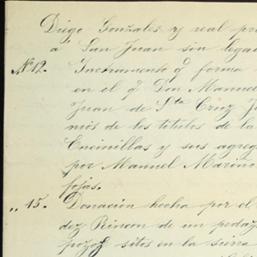 Diego Gonzales y real pr
á San Juan sin legal
Nº 12. Instrumento q forma
en el q Don Manuel
Juan de Sta Cruz
mos de los titulos de la
Encinillas y sus agreg
por Manuel Marino
fojas.
„ 15. Donacion hecha por el
dez Rincon de un pedaz
pozos sitos en la sierra